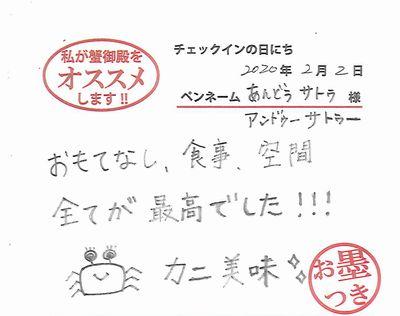 私が蟹御殿を
オススメ
します!!
チェックインの日にち
2020年2月2日
ペンネーム あんどぅ サトラ 様
アンドゥー サトラー
おもてなし、食事、空間
全てが最高でした!!!
カニ美味
お墨
つき